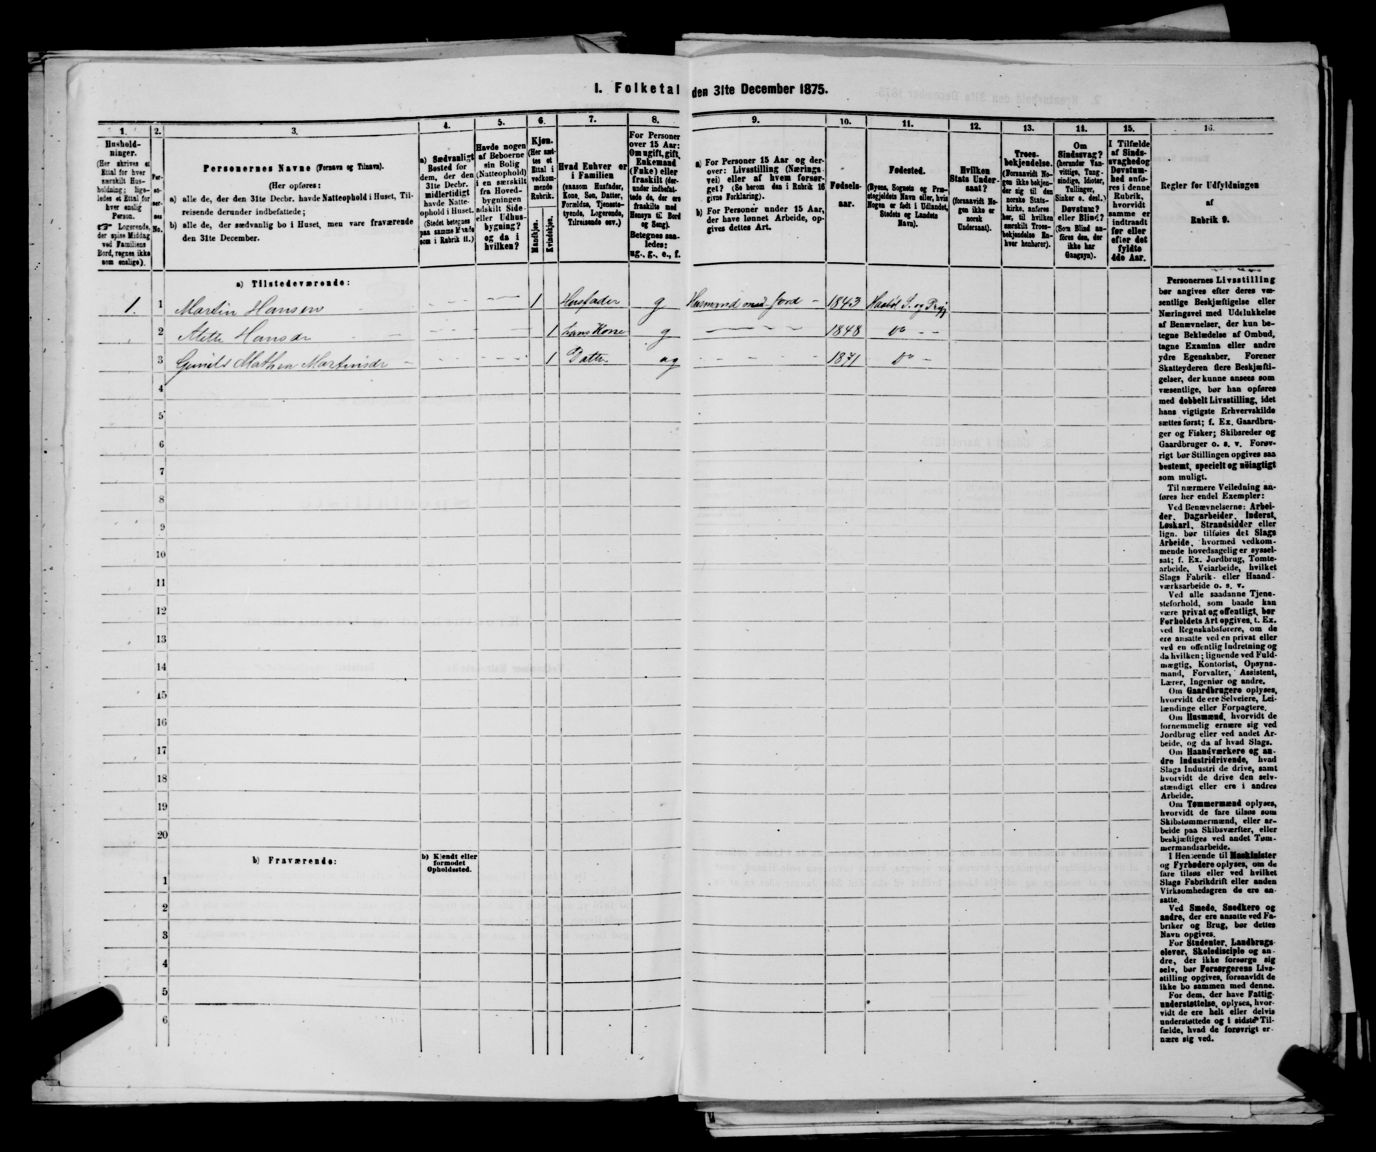 I. Folketal den 31te December 1875.
1.
Hushold-
ninger.
(Her skrives et
Ettal for hver
særskilt Hus-
holdning; lige-
ledes et Ettal for
hver enslig
Person.
Logerende,
der spise Middag
ved Familiens
Bord, regnes ikke
som enslige).
2.
No.
3.
Personernes Navne (Fornavn og Tilnavn).
(Her opføres:
a) alle de, der den 31te Decbr. havde Natteophold i Huset, Til-
reisende derunder indbefattede;
b) alle de, der sædvanlig bo i Huset, men vare fraværende
den 31te December.
4.
a) Sædvanligt
Bosted for
dem, der den
31te Decbr.
midlertidigt
havde Natte-
ophold i Huset.
(Stedet betegnes
paa samme Maade
som i Rubrik 11.)
5.
Havde nogen
af Beboerne
sin Bolig
(Natteophold)
i en særskilt
fra Hoved-
bygningen
adskilt Side-
eller Udhus-
bygning?
og da i
hvilken?
6.
Kjøn.
(Her sæt-
tes et
Ettal i
vedkom-
mende
Rubrik.
Mandkjøn.
Kvindekjøn.
7.
Hvad Enhver er
i Familien
(saasom Husfader,
Kone, Søn, Datter,
Forældre, Tjeneste-
tyende, Logerende,
Tilreisende osv.)
8.
For Personer
over 15 Aar:
Om ugift, gift,
Enkemand
(Enke) eller
fraskilt (der-
under indbefat-
tede de, der ere
fraskilte med
Hensyn til Bord
og Seng).
Betegnes saa-
ledes:
ug., g., e., f.
9.
a) For Personer 15 Aar og der-
over: Livsstilling (Nærings-
vei) eller af hvem forsør-
get? (Se herom den i Rubrik 16
givne Forklaring).
b) For Personer under 15 Aar,
der have lønnet Arbeide, op-
gives dettes Art.
10.
Fødsels-
aar.
11.
Fødested.
(Byens, Sognets og Præ-
stegjeldets Navn eller, hvis
Nogen er født i Udlandet,
Stedets og Landets
Navn).
12.
Hvilken
Stats Under-
saat?
(forsaavidt No-
gen ikke er
norsk
Undersaat).
13.
Troes-
bekjendelse.
(Forsaavidt No-
gen ikke bekjen-
der sig til den
norske Stats-
kirke, anføres
her, til hvilken
særskilt Troes-
bekjendelse En-
hver henhører).
14.
Om
Sindssvag?
(herunder Van-
vittige, Tung-
sindige, Idioter,
Tullinger,
Sinker o. desl.)
Døvstum?
eller Blind?
(Som Blind an-
føres den, der
ikke har
Gangsyn).
15.
I Tilfælde
af Sinds-
svaghed og
Døvstum-
hed anfø-
res i denne
Rubrik,
hvorvidt
samme er
indtraadt
før eller
efter det
fyldte
4de Aar.
16.
Regler for Udfyldningen
af
Rubrik 9.
a) Tilstedeværende:
1. 1 Martin Hansen 1 Husfader g Husmand med Jord 1843
2 Hansdr 1 hans Kone g 1848 do
3 Mathea Martinsdr 1 Datter ug 1871 do
4
5
6
7
8
9
10
11
12
13
14
15
16
17
18
19
20
b) Fraværende:
b) Kjendt eller
formodet
Opholdssted.
1
2
3
4
5
6
Personernes Livsstilling
bør angives efter deres væ-
sentlige Beskjæftigelse eller
Næringsvei med Udelukkelse
af Benævnelser, der kun be-
tegne Beklædelse af Ombud,
tagne Examina eller andre
ydre Egenskaber. Forener
Skatteyderen flere Beskjæfti-
gelser, der kunne ansees som
væsentlige, bør han opføres
med dobbelt Livsstilling, idet
hans vigtigste Erhvervskilde
sættes først; f. Ex. Gaardbru-
ger og Fisker; Skibsreder og
Gaardbruger o. s. v. Forøv-
rigt bør Stillingen opgives saa
bestemt, specielt og nøiagtigt
som muligt.
Til nærmere Veiledning an-
føres her endel Exempler:
Ved Benævnelserne: Arbei-
der, Dagarbeider, Inderst,
Løskarl, Strandsidder eller
lign. bør tilføies det Slags
Arbeide, hvormed vedkom-
mende hovedsagelig er syssel-
sat; f. Ex. Jordbrug, Tomte-
arbeide, Veiarbeide, hvilket
Slags Fabrik- eller Haand-
værksarbeide o. s. v.
Ved alle saadanne Tjene-
steforhold, som baade kan
være privat og offentligt, bør
Forholdets Art opgives, t. Ex.
ved Regnskabsførere, om de
ere ansatte ved en privat eller
ved en offentlig Indretning og
da hvilken; lignende ved Fuld-
mægtig, Kontorist, Opsyns-
mand, Forvalter, Assistent,
Lærer, Ingeniør og andre.
Om Gaardbrugere oplyses,
hvorvidt de ere Selveiere, Lei-
lændinge eller Forpagtere.
Om Husmænd, hvorvidt de
fornemmelig ernære sig ved
Jordbrug eller ved andet Ar-
beide, og da af hvad Slags.
Om Haandværkere og an-
dre Industridrivende, hvad
Slags Industri de drive, samt
hvorvidt de drive den selv-
stændigt eller ere i andres
Arbeide.
Om Tømmermænd oplyses,
hvorvidt de fare tilsøs som
Skibstømmermænd, eller ar-
beide paa Skibsværfter, eller
beskjæftiges ved andet Tøm-
mermandsarbeide.
I Henseende til Maskinister
og Fyrbødere oplyses, om de
fare tilsøs eller ved hvilket
Slags Fabrikdrift eller anden
Virksomhedsgren de ere an-
satte.
Ved Smede, Snedkere og
andre, der ere ansatte ved Fa-
briker og Brug, bør dettes
Navn opgives.
For Studenter, Landbrugs-
elever, Skoledisciple og an-
dre, der ikke forsørge sig
selv, bør Forsørgerens Livs-
stilling opgives, forsaavidt de
ikke bo sammen med denne.
For dem, der have Fattig-
understøttelse, oplyses, hvor-
vidt de ere helt eller delvis
understøttede og i sidste Til-
fælde, hvad de forøvrigt er-
nære sig ved.